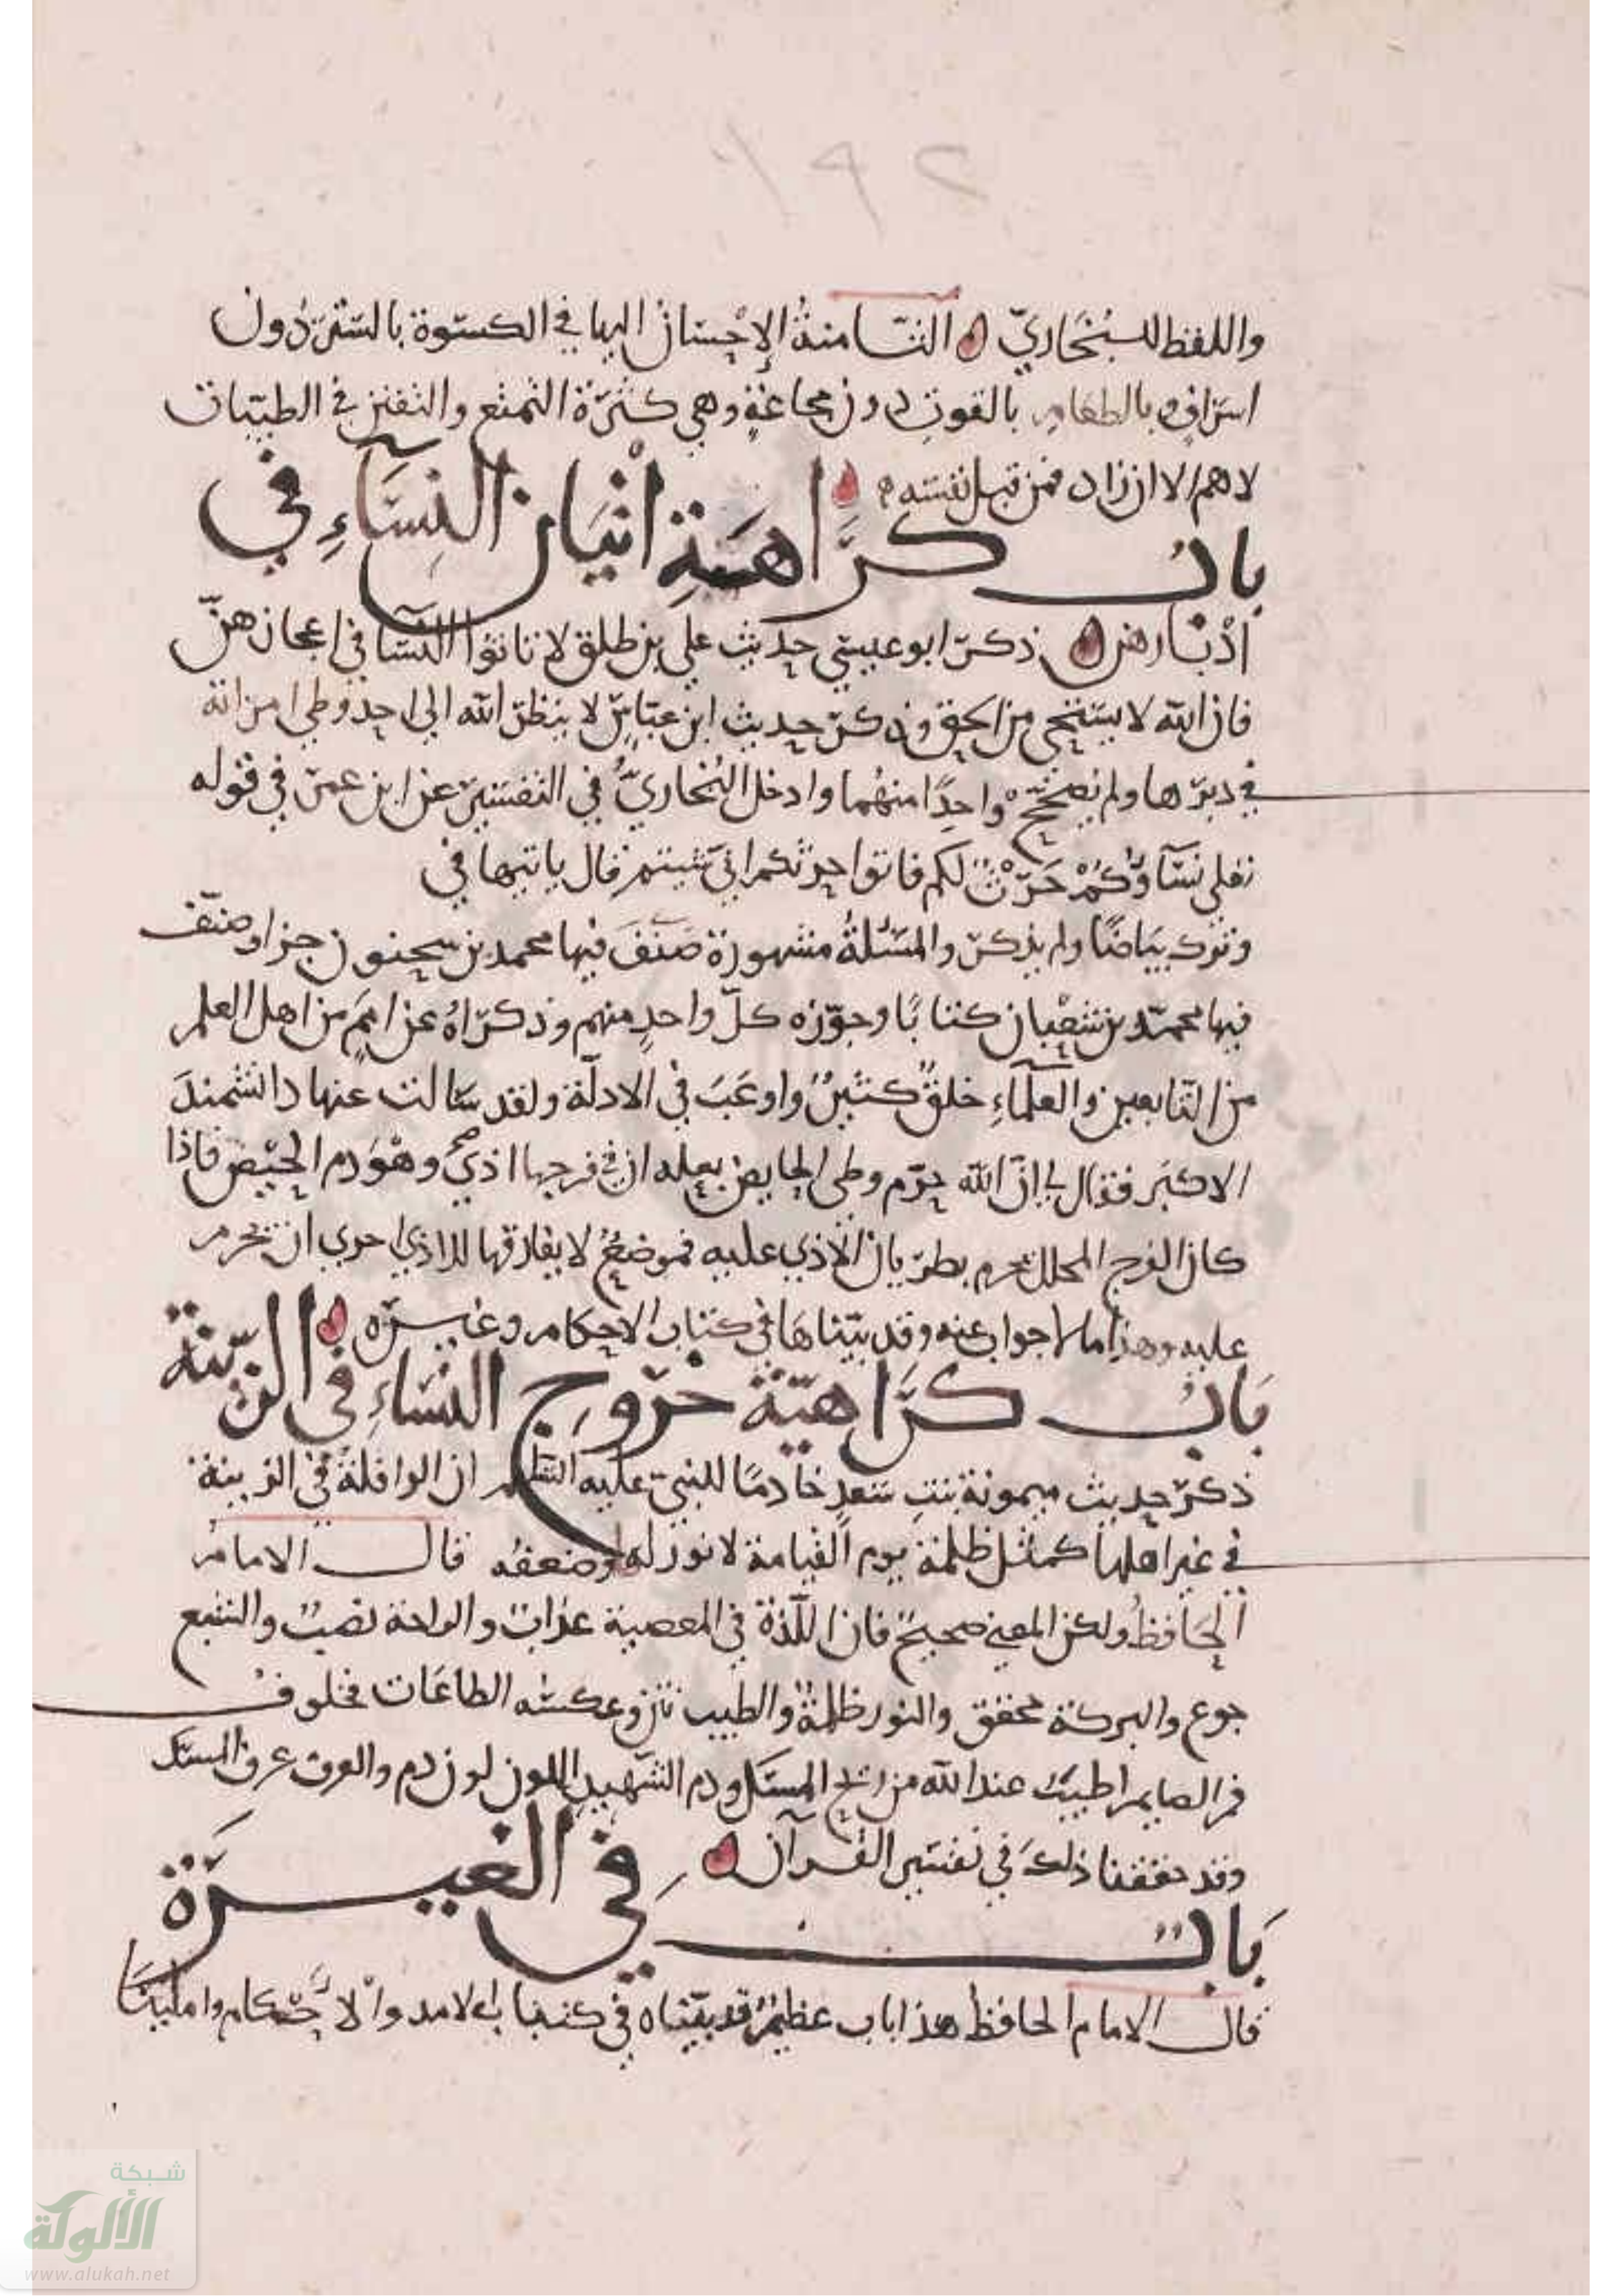 ١٩٢
واللفظ للبخاري الثامنة الإحسان اليها في الكسوة بالستر دون
اسراف وبالطعام بالقوت دون مجاعة وهي كثرة التمتع والتفنن في الطيبات
لاهم الا ان زاد فمن قبل نفسه
باب كراهية اتيان النساء في
ادبارهن ذكر ابو عيسى حديث علي بن طلق لا تاتوا النسا في اعجازهن
فان الله لا يستحي من الحق وذكر حديث ابن عباس لا ينظر الله الي احد وطي امراته
في دبرها ولم يصحح واحدا منهما وادخل البخاري في التفسير عن ابن عمر في قوله
تعلى نساؤكم حرث لكم فاتوا حرثكم اني شيتم قال ياتيها في
وترك بياضا ولم يذكر والمسئلة مشهورة صنف فيها محمد بن سحنون جزا وصنف
فيها محمد بن شعبان كتابا وجوزه كل واحد منهم وذكراه عن امم من اهل العلم
من التابعين والعلماء خلق كثير واوعب في الادلة ولقد سالت عنها دانشمند
الاكبر فقال لي ان الله حرم وطي الحايض بعله ان في فرجها اذي وهو دم الحيض فاذا
كان الفرج المحلل يحرم بطريان الاذي عليه فموضع لا يفارقها الاذي احري ان يحرم
عليه وهذا مالا جواب عنه وقد بيناها في كتاب الاحكام وغيره
باب كراهية خروج النساء في الزينة
ذكر حديث ميمونة بنت سعد خادما للنبي عليه السلم ان الرافلة في الزينة
في غير اهلها كمثل ظلمة يوم القيامة لا نور له وضعفه قال الامام
الحافظ ولكن المعنى صحيح فان اللذة في المعصية عذاب والراحة نصب والشبع
جوع والبركة محقق والنور ظلمة والطيب نتن وعكسه الطاعات فخلوف
فم الصايم اطيب عند الله من ريح المسك ودم الشهيد اللون لون دم والعرف عرف المسك
وقد حققنا ذلك في تفسير القرآن
باب في الغيرة
قال الامام الحافظ هذا باب عظيم قد بيناه في كتاب الامد والاحكام وامليتنا
شبكة
الألوكة
www.alukah.net